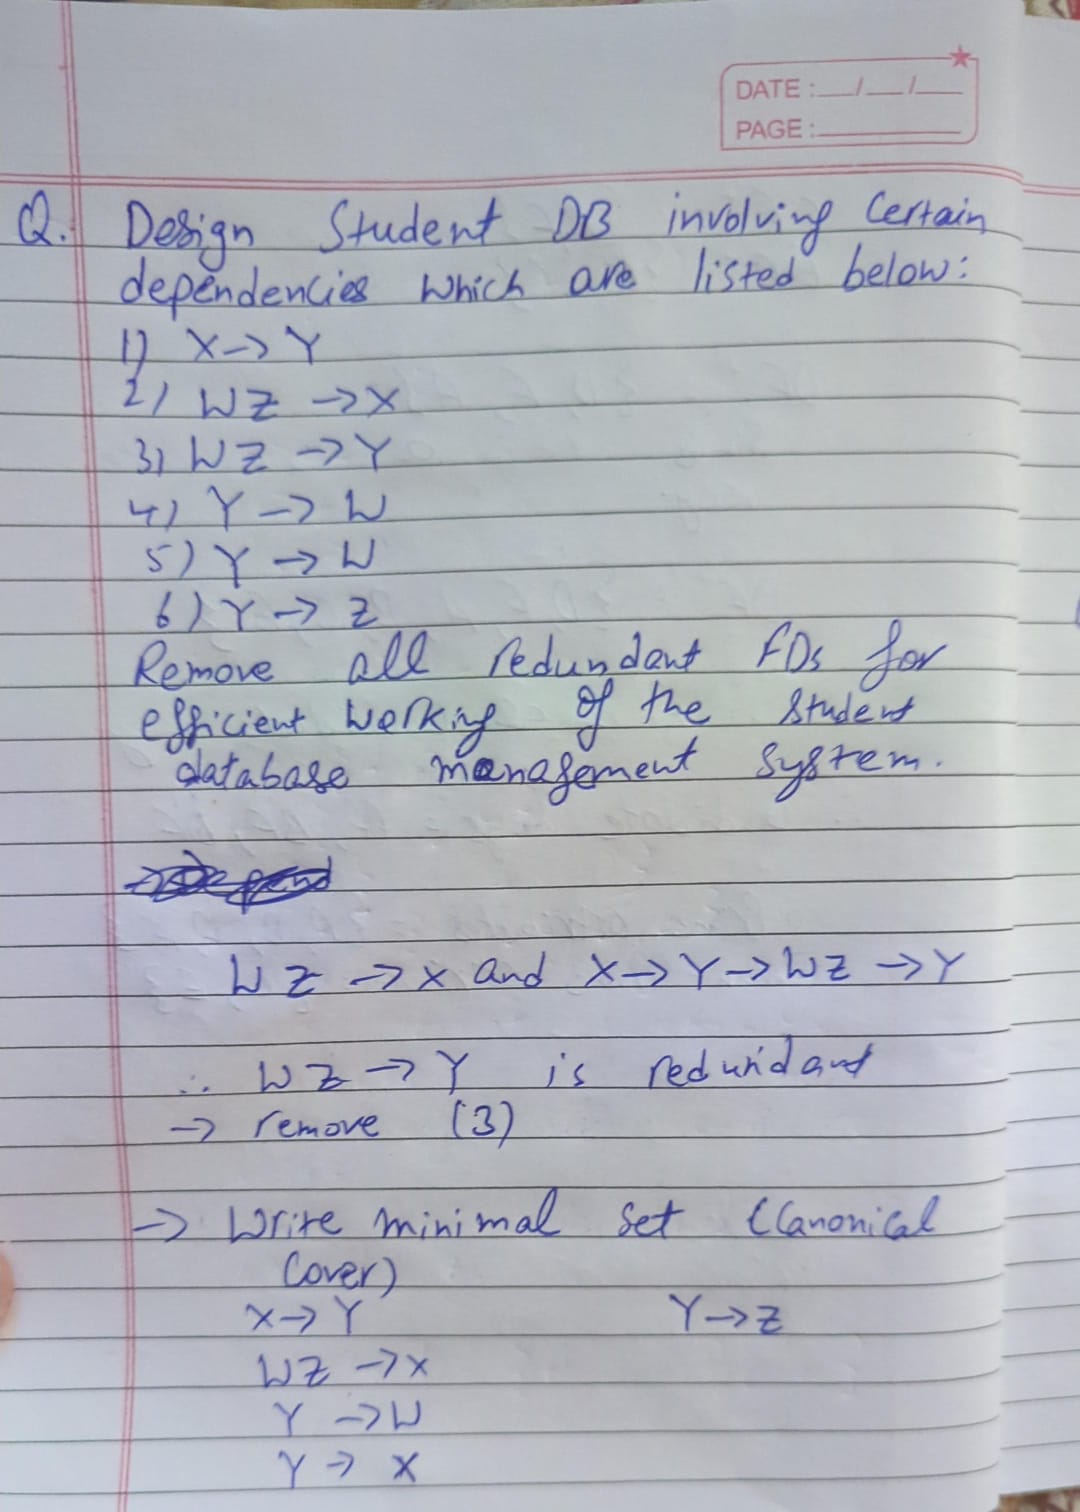 DATE : __/__/__
PAGE : ______
Q. Design Student DB involving Certain
dependencies which are listed below:
1) X → Y
2) WZ → X
3) WZ → Y
4) Y → W
5) Y → W
6) Y → Z
Remove all redundant FDs for
efficient working of the Student
database management system.
WZ → X and X → Y → WZ → Y
∴ WZ → Y is redundant
→ remove (3)
→ Write minimal set (Canonical
Cover)
X → Y Y → Z
WZ → X
Y → W
Y → X